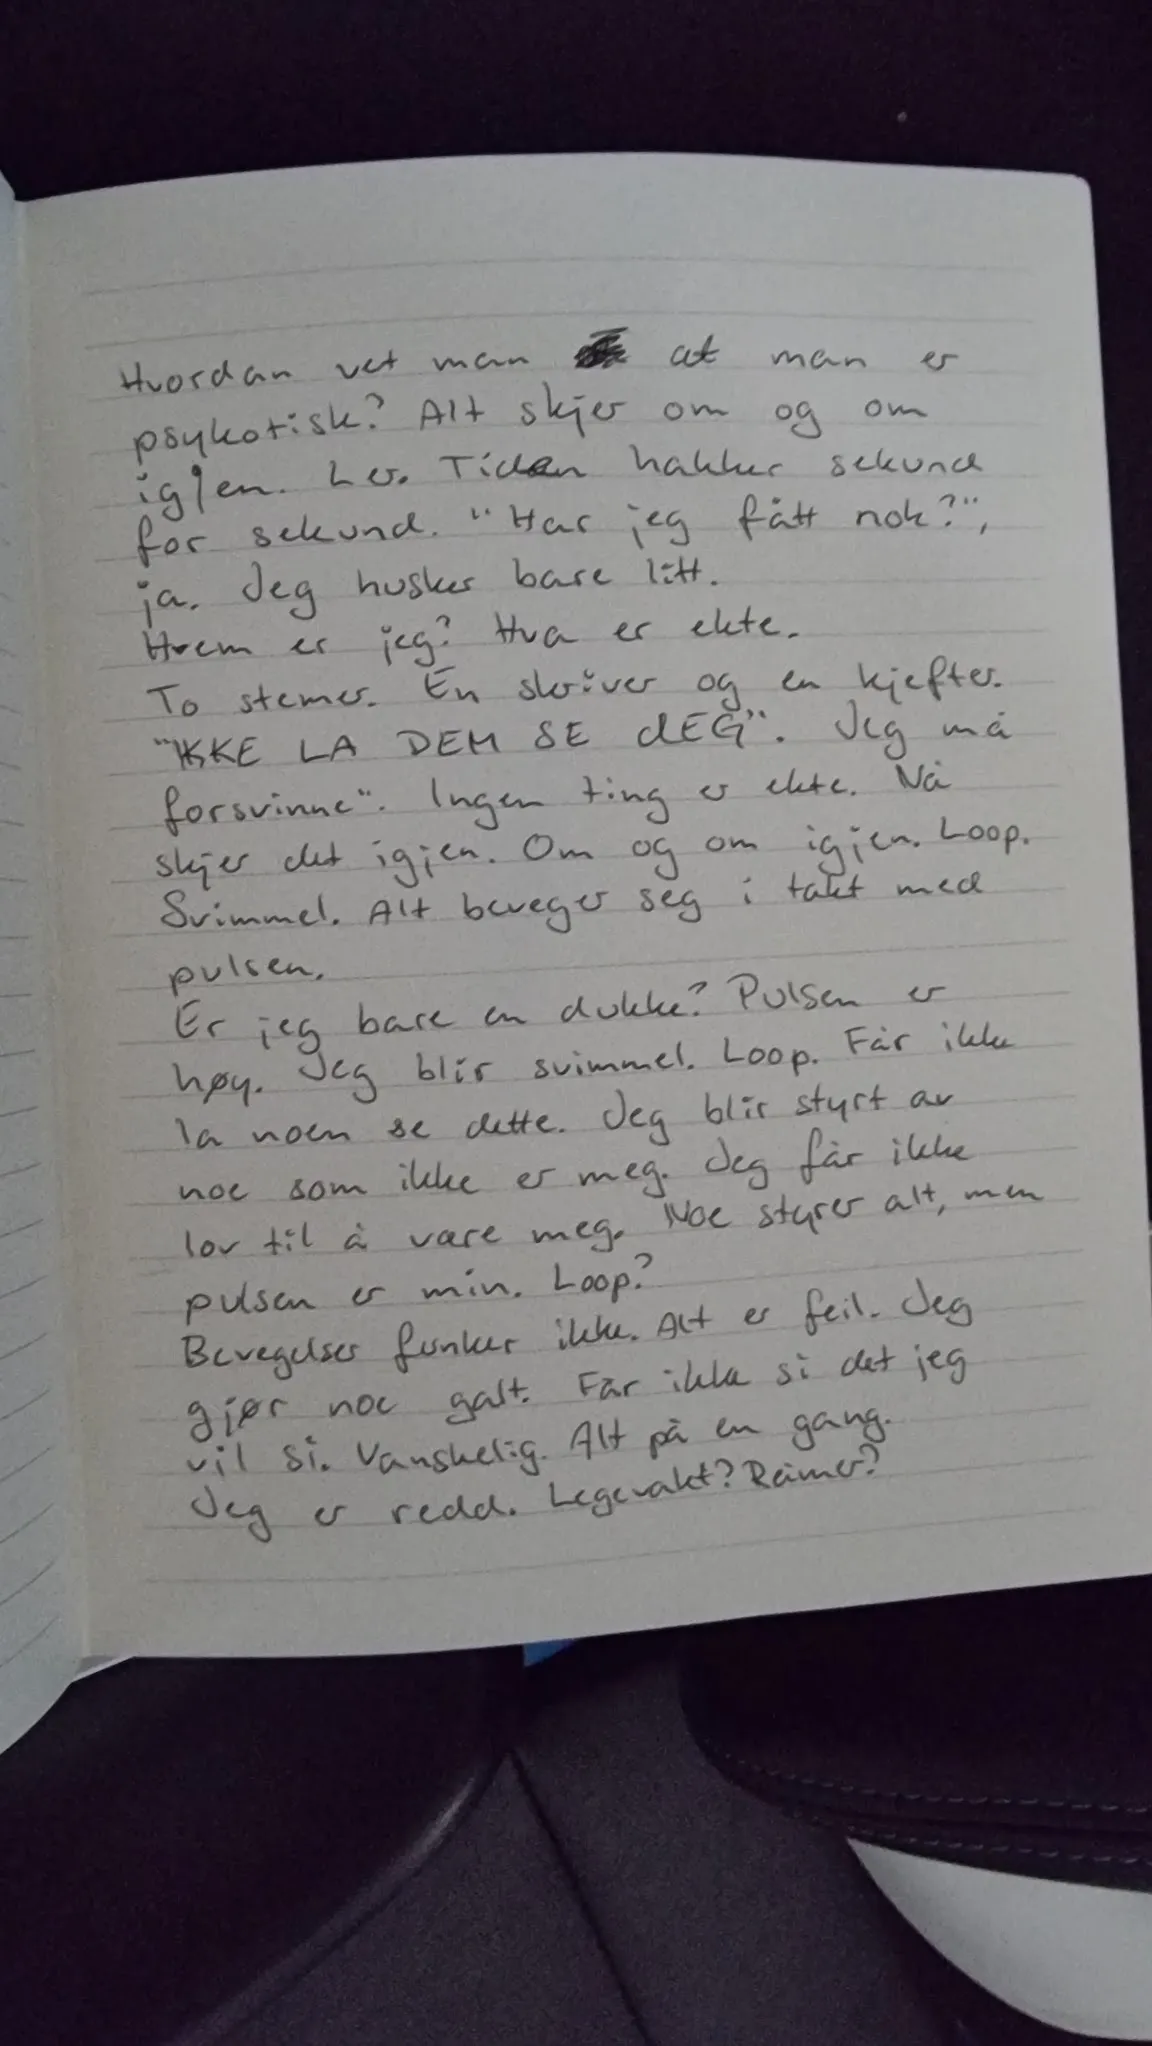 Hvordan vet man at man er
psykotisk? Alt skjer om og om
igjen. Ler. Tiden hakker sekund
for sekund. "Har jeg fått nok?",
ja. Jeg husker bare litt.
Hvem er jeg? Hva er ekte.
To stemer. En skriver og en kjefter.
"IKKE LA DEM SE dEG". Jeg må
forsvinne". Ingen ting er ekte. Nå
skjer det igjen. Om og om igjen. Loop.
Svimmel. Alt beveger seg i takt med
pulsen.
Er jeg bare en dukke? Pulsen er
høy. Jeg blir svimmel. Loop. Får ikke
la noen se dette. Jeg blir styrt av
noe som ikke er meg. Jeg får ikke
lov til å være meg. Noe styrer alt, men
pulsen er min. Loop?
Bevegelser funker ikke. Alt er feil. Jeg
gjør noe galt. Får ikke si det jeg
vil si. Vanskelig. Alt på en gang.
Jeg er redd. Legevakt?